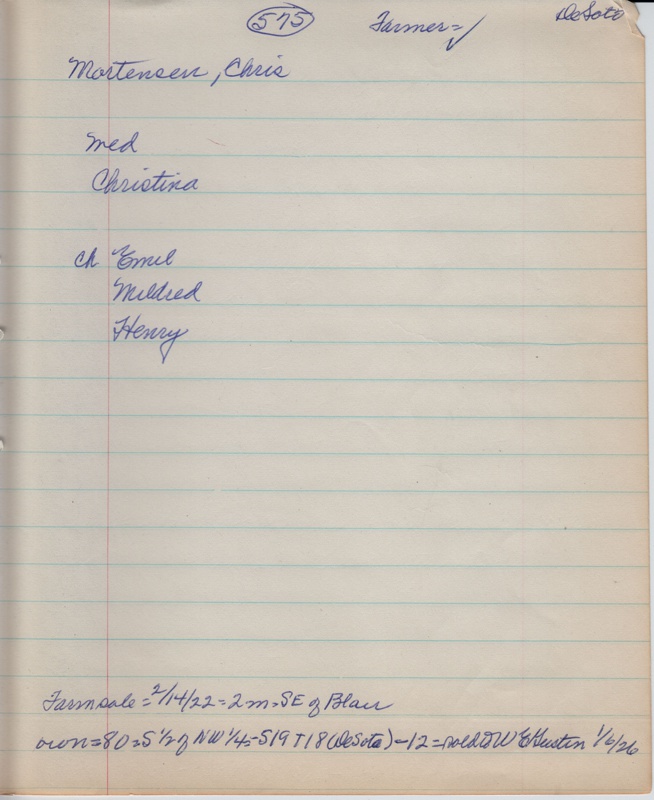 575 Farmer= ✓ DeSoto
Mortensen, Chris
med
Christina
ch Emil
Mildred
Henry
Farmsale=2/14/22=2m=SE of Blair
own=80=S½ of NW¼=S19 T18 (DeSoto)-12=sold to W E Gustin 1/6/26